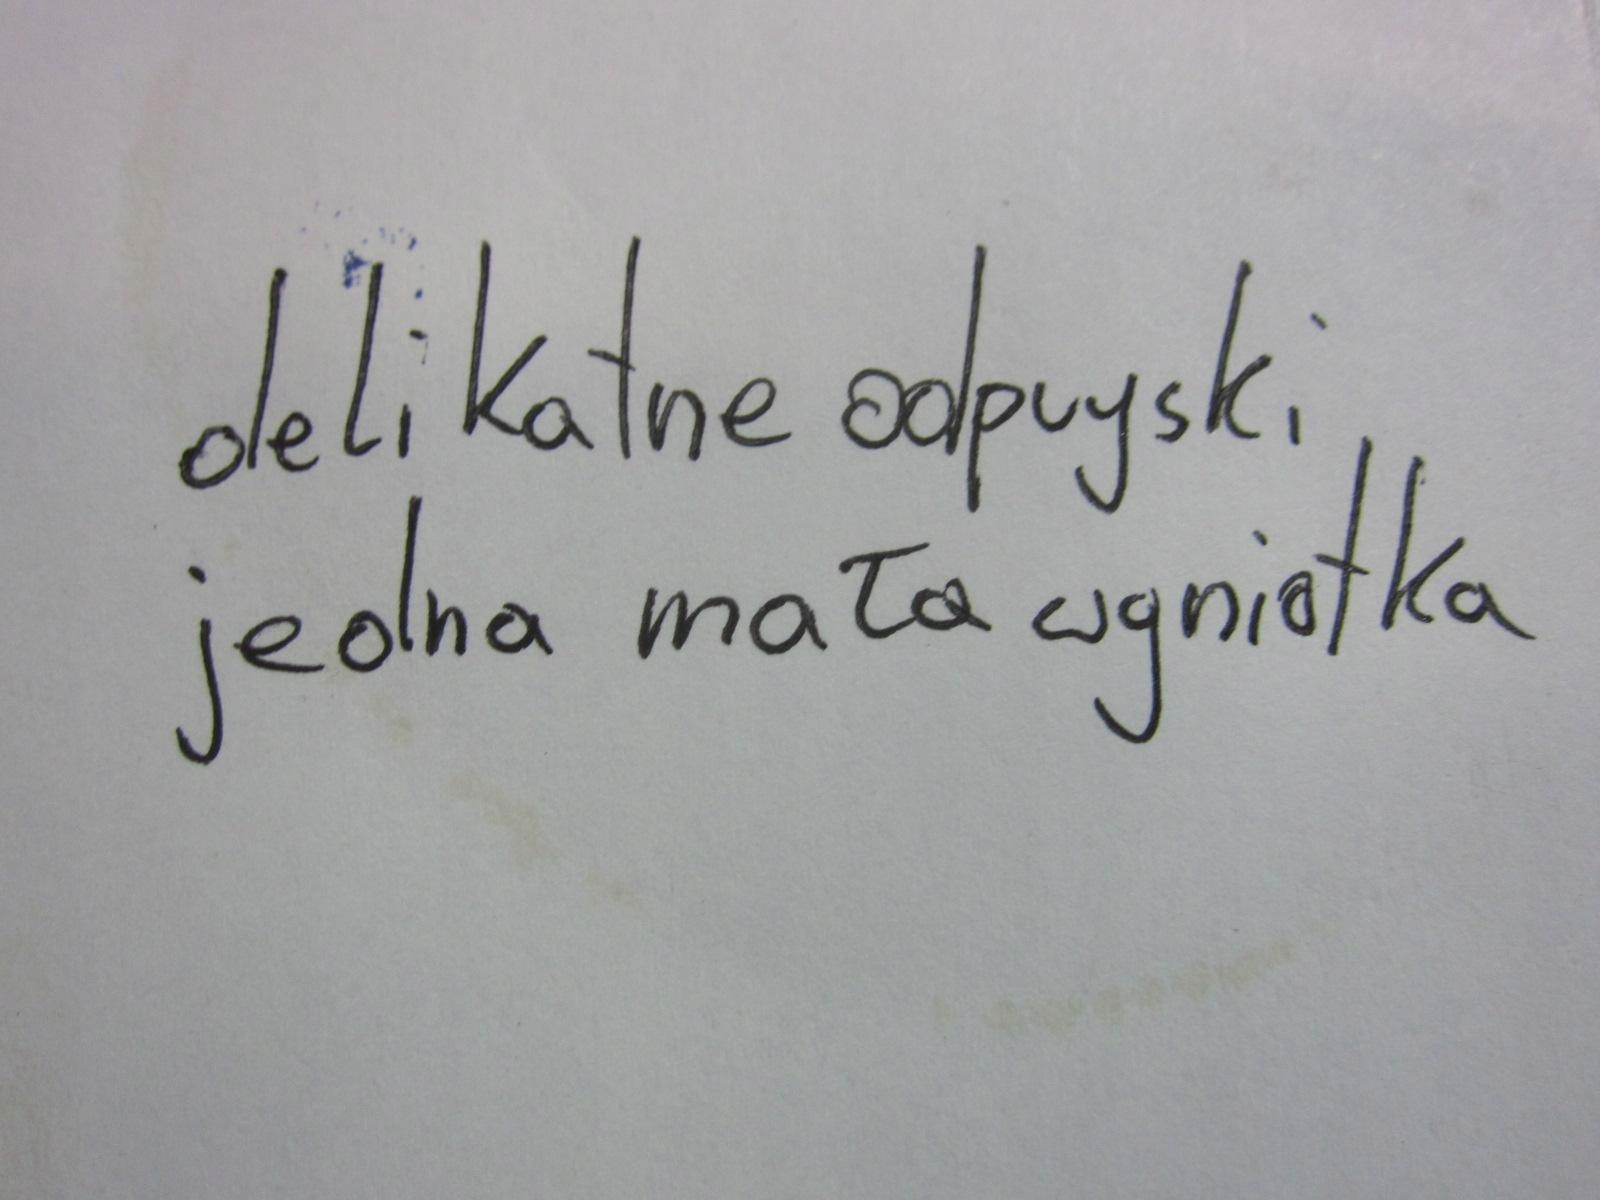 delikatne odpryski
jedna mała wgniotka